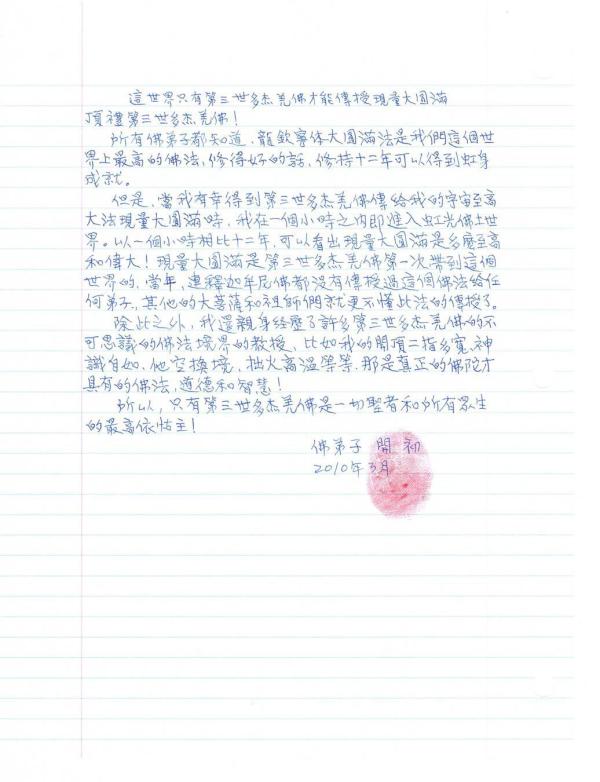 這世界只有第三世多杰羌佛才能傳授現量大圓滿
頂禮第三世多杰羌佛!
所有佛弟子都知道,龍欽寧体大圓滿法是我們這個世
界上最高的佛法,修得好的話,修持十二年可以得到虹身
成就。
但是,當我有幸得到第三世多杰羌佛傳給我的宇宙至高
大法現量大圓滿時,我在一個小時之內即進入虹光佛土世
界。以一個小時相比十二年,可以看出現量大圓滿是多麼至高
和偉大!現量大圓滿是第三世多杰羌佛第一次帶到這個
世界的,當年,連釋迦牟尼佛都沒有傳授過這個佛法給任
何弟子,其他的大菩薩和祖師們就更不懂此法的傳授了。
除此之外,我還親身經歷了許多第三世多杰羌佛的不
可思議的佛法境界的教授,比如我的開頂二指多寬、神
識自如、他空換境、拙火高溫等等,那是真正的佛陀才
具有的佛法、道德和智慧!
所以,只有第三世多杰羌佛是一切聖者和所有眾生
的最高依怙主!
佛弟子 開初
2010年3月